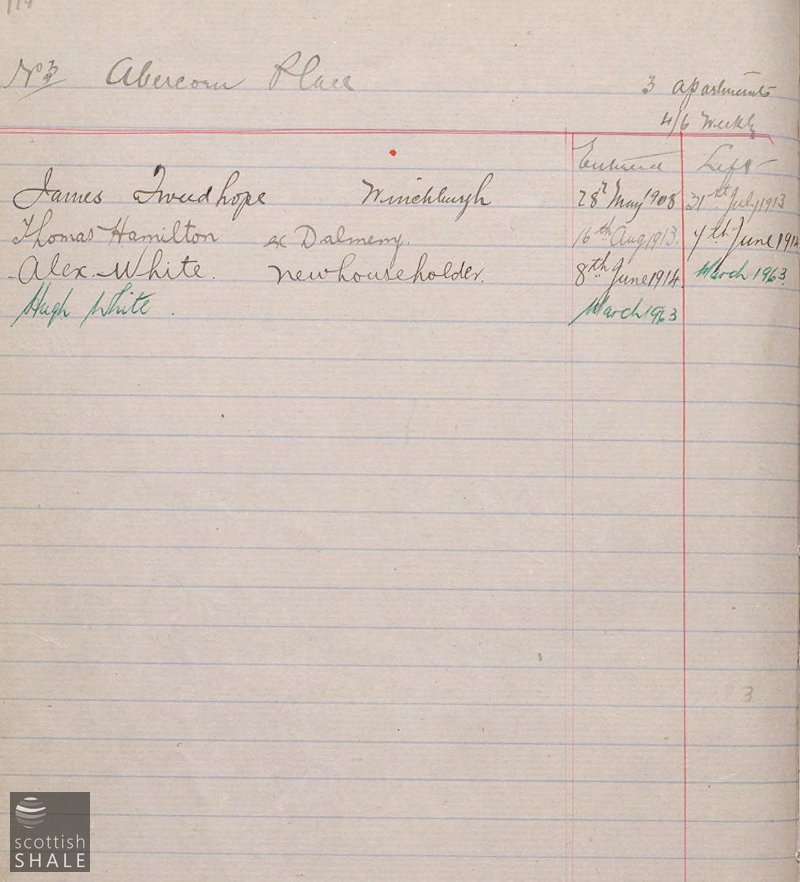 No 3 Abercorn Place
3 apartments
4/6 Weekly
Entered Left
James Tweedhope Winchburgh 28th May 1908 31st July 1913
Thomas Hamilton ex Dalmeny. 16th Aug 1913. 7th June 1914
Alex White. new householder. 8th June 1914. March 1963.
Hugh White. March 1963
3
scottish
SHALE